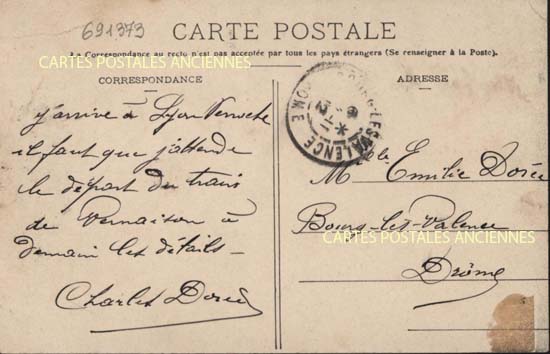 691373
CARTE POSTALE
La Correspondance au recto n'est pas acceptée par tous les pays étrangers (Se renseigner à la Poste).
CARTES POSTALES ANCIENNES
CORRESPONDANCE
ADRESSE
j'arrive à Lyon
il faut que j'attende
le départ du train
de Vernaison à
demain les détails -
Charles Dorée
BOURG-LES-VALENCE
DROME
Mlle Emilie Dorée
Bourg-les-Valence
CARTES POSTALES ANCIENNES
Drôme